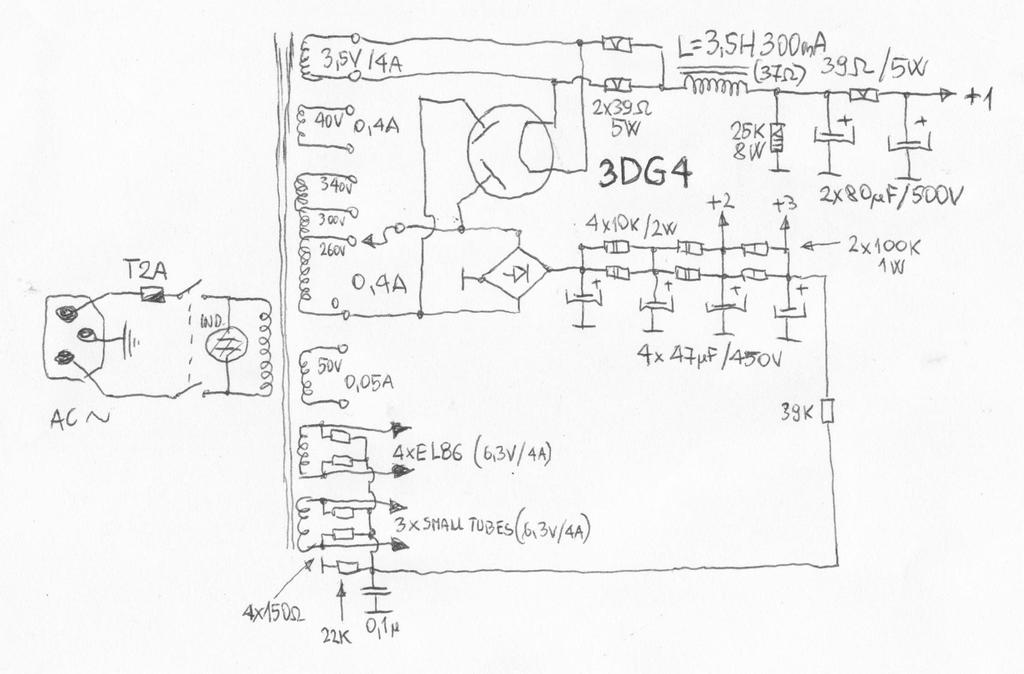 3,5V/4A
L=3,5H 300mA
(37Ω)
39Ω/5W
+1
40V
0,4A
2x39Ω
5W
25K
8W
3DG4
2x80µF/500V
340V
300V
260V
0,4A
+2
+3
4x10K/2W
2x100K
1W
T2A
IND.
AC~
4x47µF/450V
50V
0,05A
39K
4xEL86 (6,3V/4A)
3xSMALL TUBES(6,3V/4A)
4x150Ω
22K
0,1µ